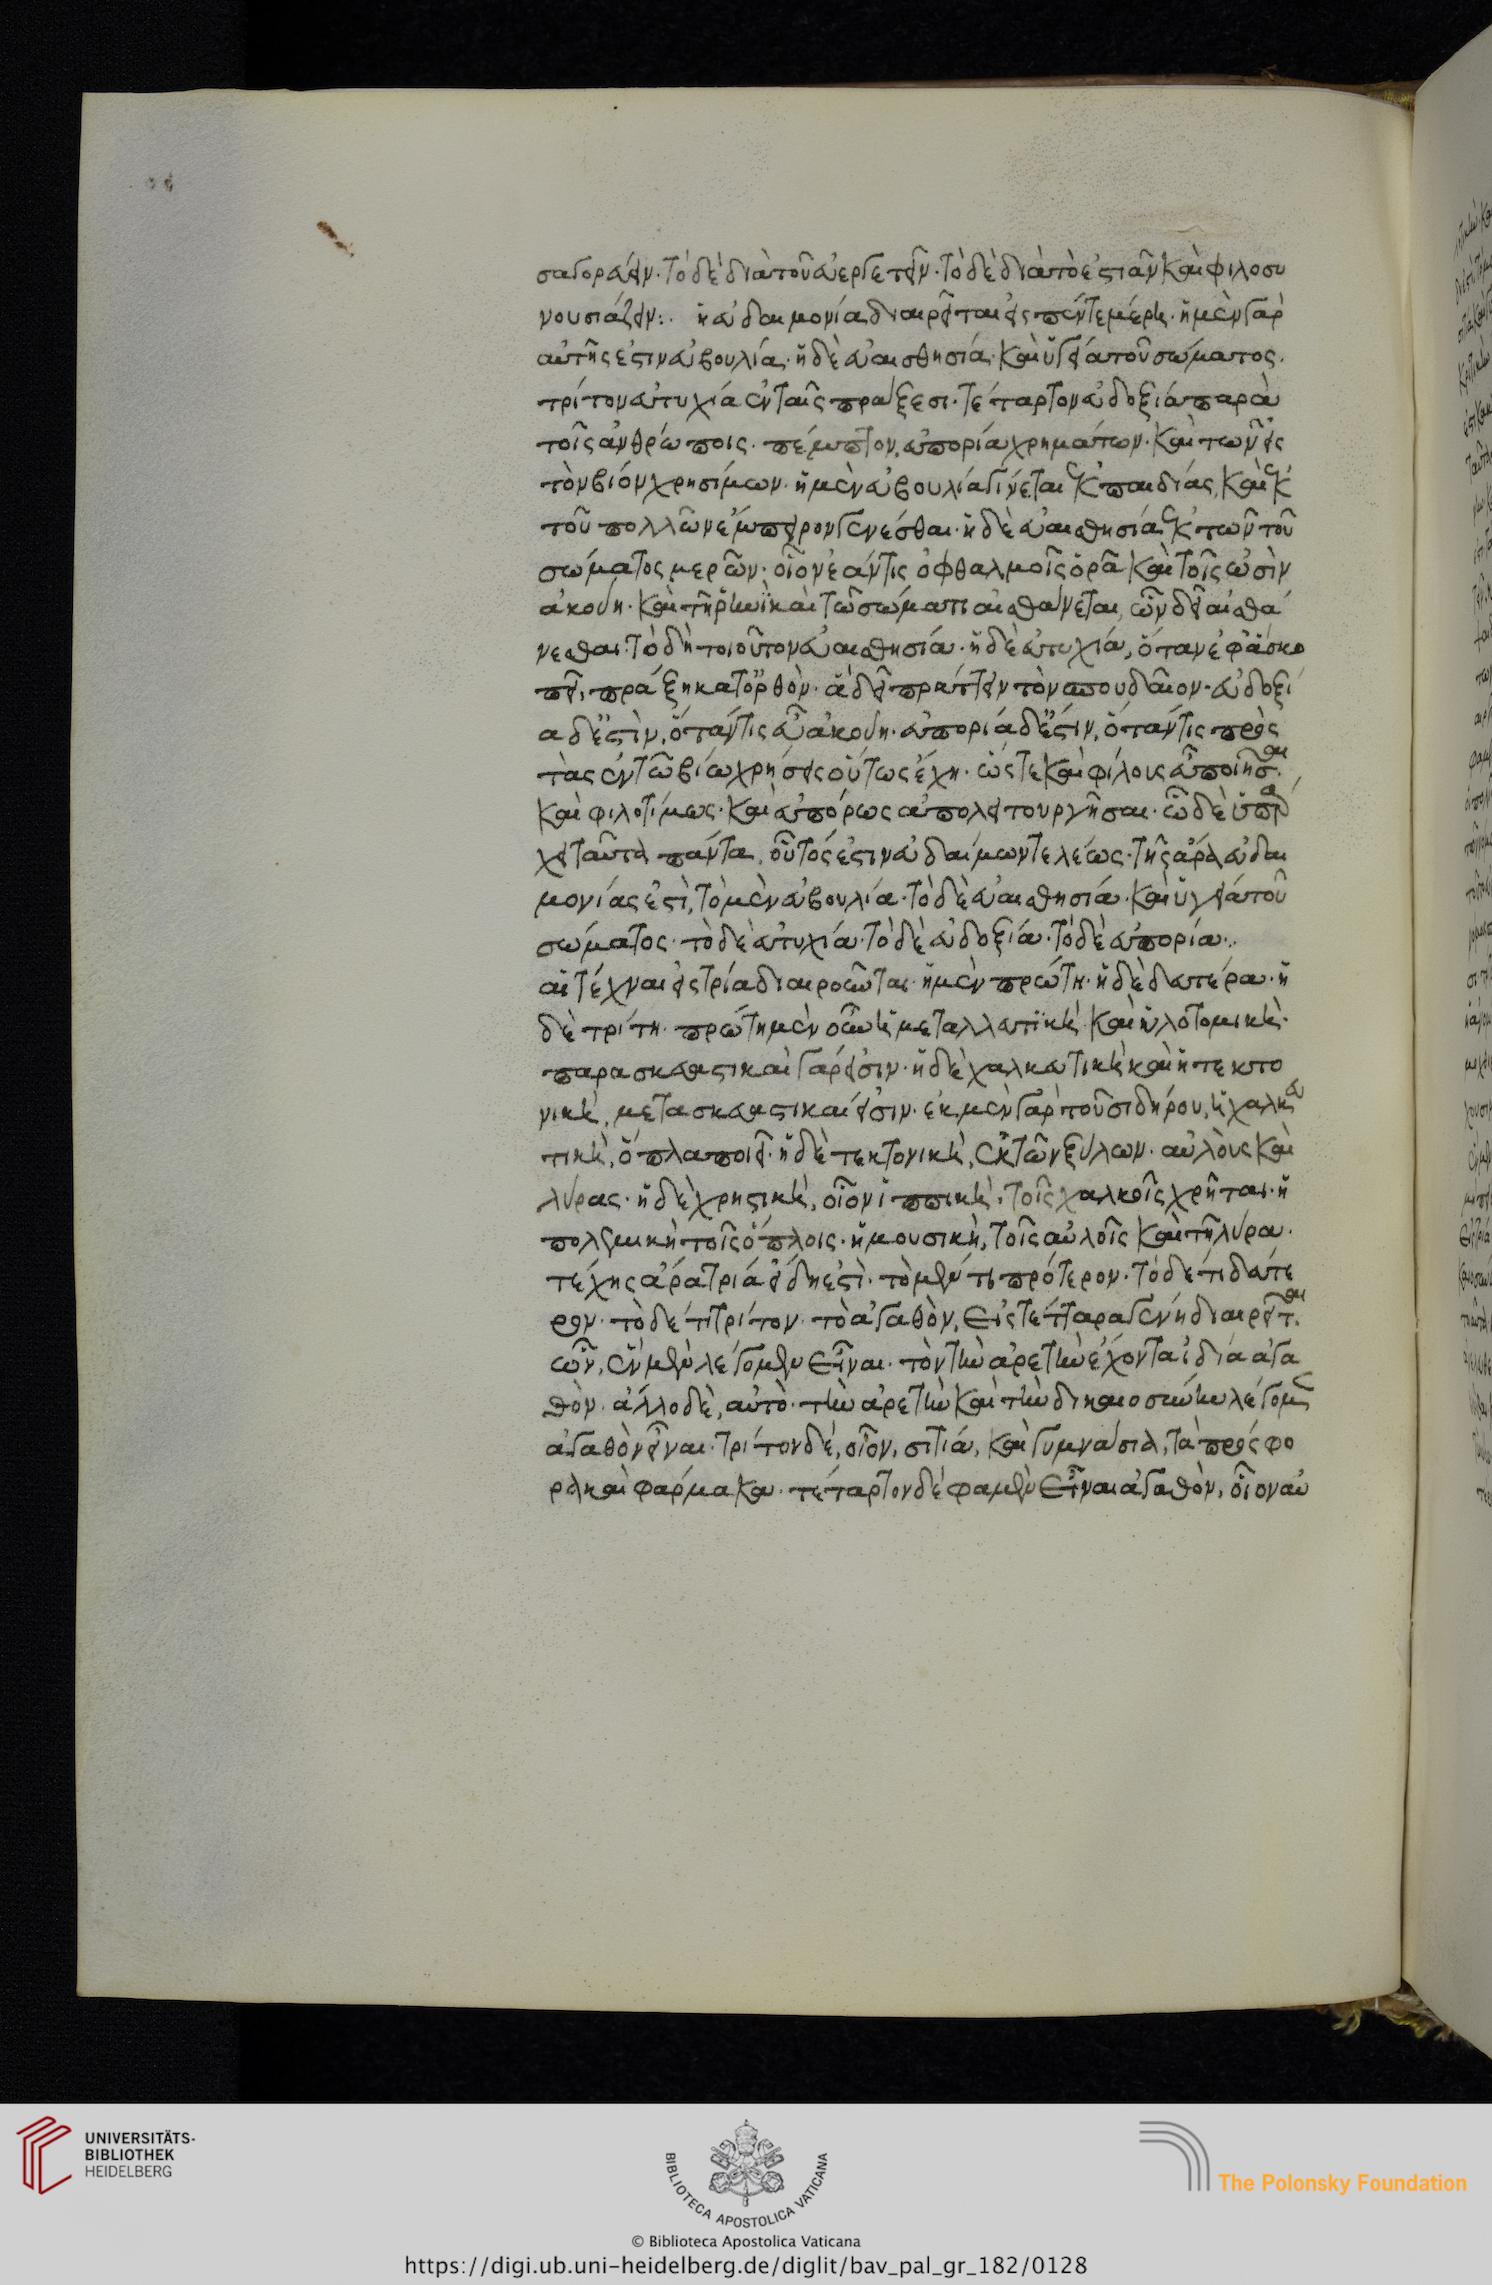 σαγορεύειν· τὸ δὲ διὰ τοῦ εὐεργετεῖν· τὸ δὲ διὰ τὸ ἑστιᾶν καὶ φιλοσυ
νουσιάζειν:· ἡ εὐδαιμονία διαιρεῖται εἰς πέντε μέρη· ἡ μὲν γὰρ
αὐτῆς ἐστιν εὐβουλία· ἡ δὲ εὐαισθησία· καὶ ὑγεία τοῦ σώματος·
τρίτον εὐτυχία ἐν ταῖς πράξεσι· τέταρτον εὐδοξία παρὰ
τοῖς ἀνθρώποις· πέμπτον, εὐπορία χρημάτων· καὶ τῶν εἰς
τὸν βίον χρησίμων· ἡ μὲν εὐβουλία γίνεται ἐκ παιδίας, καὶ ἐκ
τοῦ πολλῶν ἔμπειρον γενέσθαι· ἡ δὲ εὐαισθησία ἐκ τῶν τοῦ
σώματος μερῶν· οἷον ἐάν τις ὀφθαλμοῖς ὁρᾶ καὶ τοῖς ὠσὶν
ἀκούη· καὶ τῆ ῥινὶ καὶ τῶ σώματι αἰσθάνεται, ὧν δεῖ αἰσθά
νεσθαι· τὸ δὴ τοιοῦτον εὐαισθησία· ἡ δὲ εὐτυχία, ὅταν ἐφ' ἃ σκο
πεῖ, πράξη κατορθὸν· ἃ δεῖ πράττειν τὸν σπουδαῖον· εὐδοξί
α δέ ἐστὶν, ὅτάν τις εὖ ἀκούη· εὐπορία δέ ἐστιν, ὅτάν τις πρὸς
τὰς ἐν τῶ βίω χρήσεις οὕτως ἔχη· ὥστε καὶ φίλους εὖ ποιῆσαι
καὶ φιλοτίμως· καὶ εὐπόρως ἀπολειτουργῆσαι· ὧ δὲ ὑπάρ
χει ταῦτα πάντα, οὗτός ἐστιν εὐδαίμων τελείως· τῆς ἄρα εὐδαι
μονίας ἐστὶ, τὸ μὲν εὐβουλία· τὸ δὲ εὐαισθησία· καὶ ὑγεία τοῦ
σώματος· τὸ δὲ εὐτυχία· τὸ δὲ εὐδοξία· τὸ δὲ εὐπορία:·
αἱ τέχναι εἰς τρία διαιροῦνται· ἡ μὲν πρώτη· ἡ δὲ δευτέρα· ἡ
δὲ τρίτη· πρώτη μὲν οὖν ἡ μεταλλευτικὴ καὶ ἡ ὑλοτομικὴ·
παρασκευαστικαὶ γάρ εἰσιν· ἡ δὲ χαλκευτικὴ καὶ ἡ τεκτο
νικὴ, μετασκευαστικαί εἰσιν· ἐκ μὲν γὰρ τοῦ σιδήρου, ἡ χαλκευ
τικὴ, ὅπλα ποιεῖ· ἡ δὲ τεκτονικὴ, ἐκ τῶν ξύλων· αὐλοὺς καὶ
λύρας· ἡ δὲ χρηστικὴ, οἷον ἱππικὴ, τοῖς χαλκοῖς χρῆται· ἡ
πολεμικὴ τοῖς ὅπλοις· ἡ μουσικὴ, τοῖς αὐλοῖς καὶ τῆ λύρα·
τέχνης ἄρα τρία εἴδη ἐστὶ· τὸ μέν τι πρότερον· τὸ δέ τι δεύτε
ρον· τὸ δέ τι τρίτον· τὸ ἀγαθὸν, εἰς τέτταρα γένη διαιρεῖται
ὧν, ἓν μὲν λέγομεν εἶναι· τὸν τὴν ἀρετὴν ἔχοντα ἰδία ἀγα
θόν· ἄλλο δὲ, αὐτὸ· τὴν ἀρετὴν καὶ τὴν δικαιοσύνην λέγομεν
ἀγαθὸν εἶναι· τρίτον δέ, οἷον, σιτία, καὶ γυμνάσια, τὰ πρόσφο
ρα καὶ φάρμακα· τέταρτον δέ φαμεν εἶναι ἀγαθὸν, οἷον αὐ
UNIVERSITÄTS-
BIBLIOTHEK
HEIDELBERG
BIBLIOTECA APOSTOLICA VATICANA
The Polonsky Foundation
© Biblioteca Apostolica Vaticana
https://digi.ub.uni-heidelberg.de/diglit/bav_pal_gr_182/0128